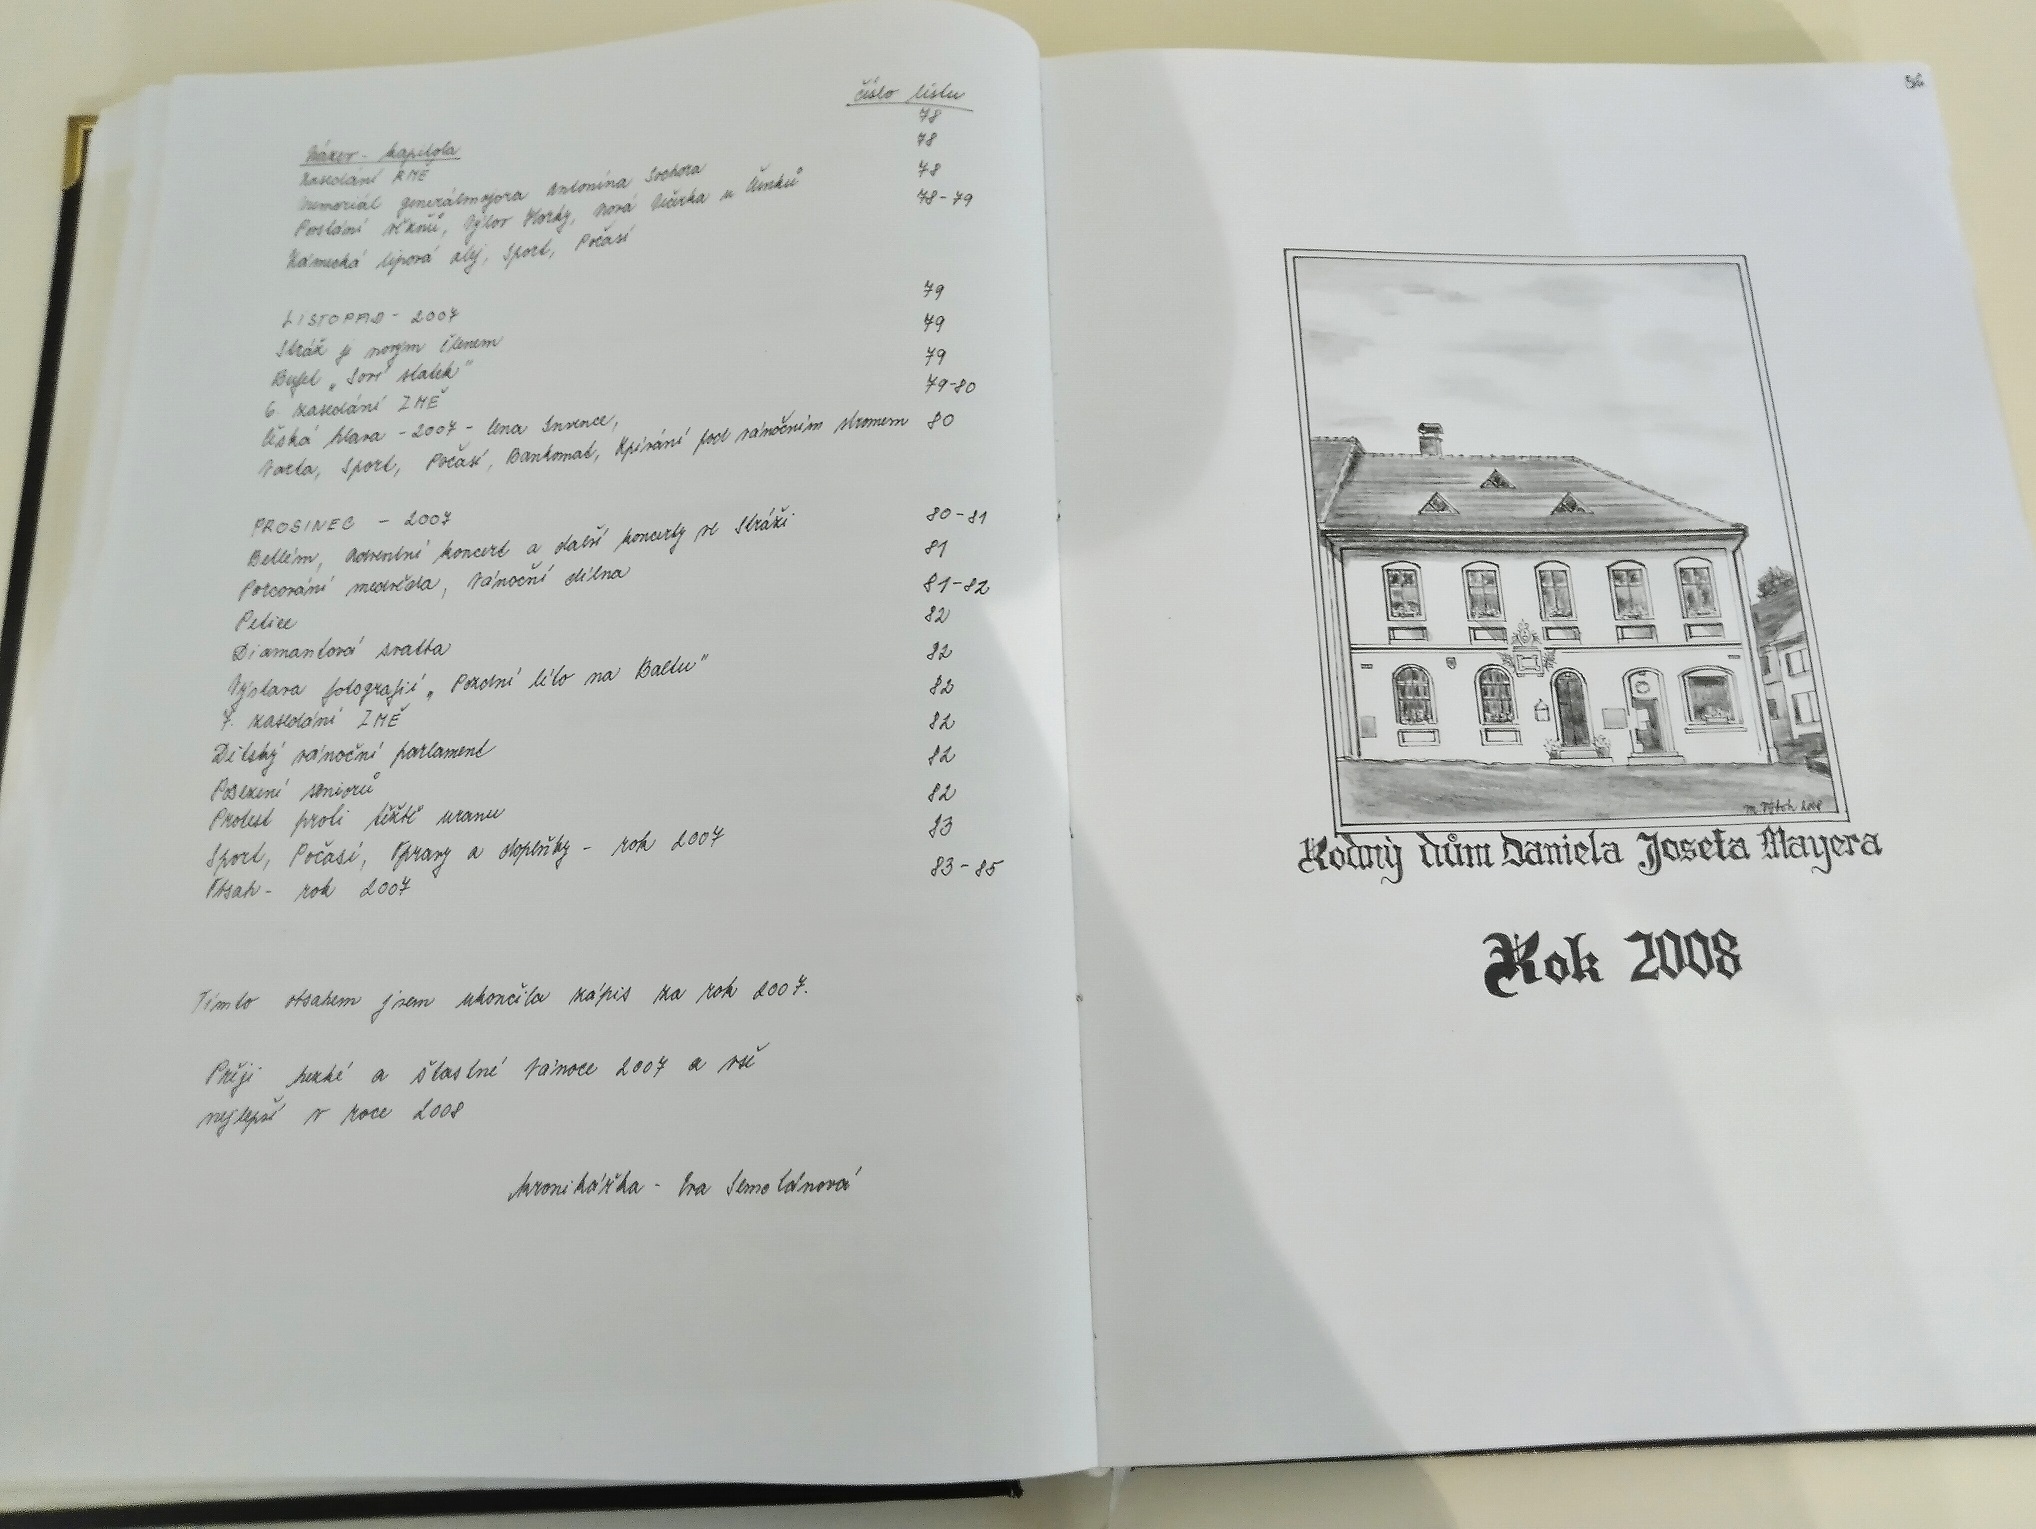 číslo listu
Název - kapitola
78
Zasedání RMĚ
78
Memoriál generálmajora Antonína Sochora
78
Poslání vlčků, Výlov Horky, Nová Večerka u Šimků
78-79
Zámecká lipová alej, Sport, Počasí
LISTOPAD - 2007
79
Stráž je novým členem
79
Bufet „Soví statek"
79
6. zasedání ZMĚ
79-80
Česká hlava - 2007 - Cena Invence,
Varta, Sport, Počasí, Bankomat, Zpívání pod vánočním stromem 80
PROSINEC - 2007
Betlém, Adventní koncert a další koncerty ve Stráži 80-81
Porcování medvěda, Vánoční dílna 81
Petice 81-82
Diamantová svatba 82
Výstava fotografií „Pozdní léto na Baltu" 82
7. zasedání ZMĚ 82
Dětský vánoční parlament 82
Posezení seniorů 82
Protest proti těžbě uranu 82
Sport, Počasí, Opravy a doplňky - rok 2007 83
Obsah - rok 2007 83-85
Tímto obsahem jsem ukončila zápis za rok 2007.
Přeji hezké a šťastné Vánoce 2007 a vše
nejlepší v roce 2008
Kronikářka - Eva Semelánová
86
M. Týtoh 2008
Rodný dům Daniela Josefa Mayera
Rok 2008